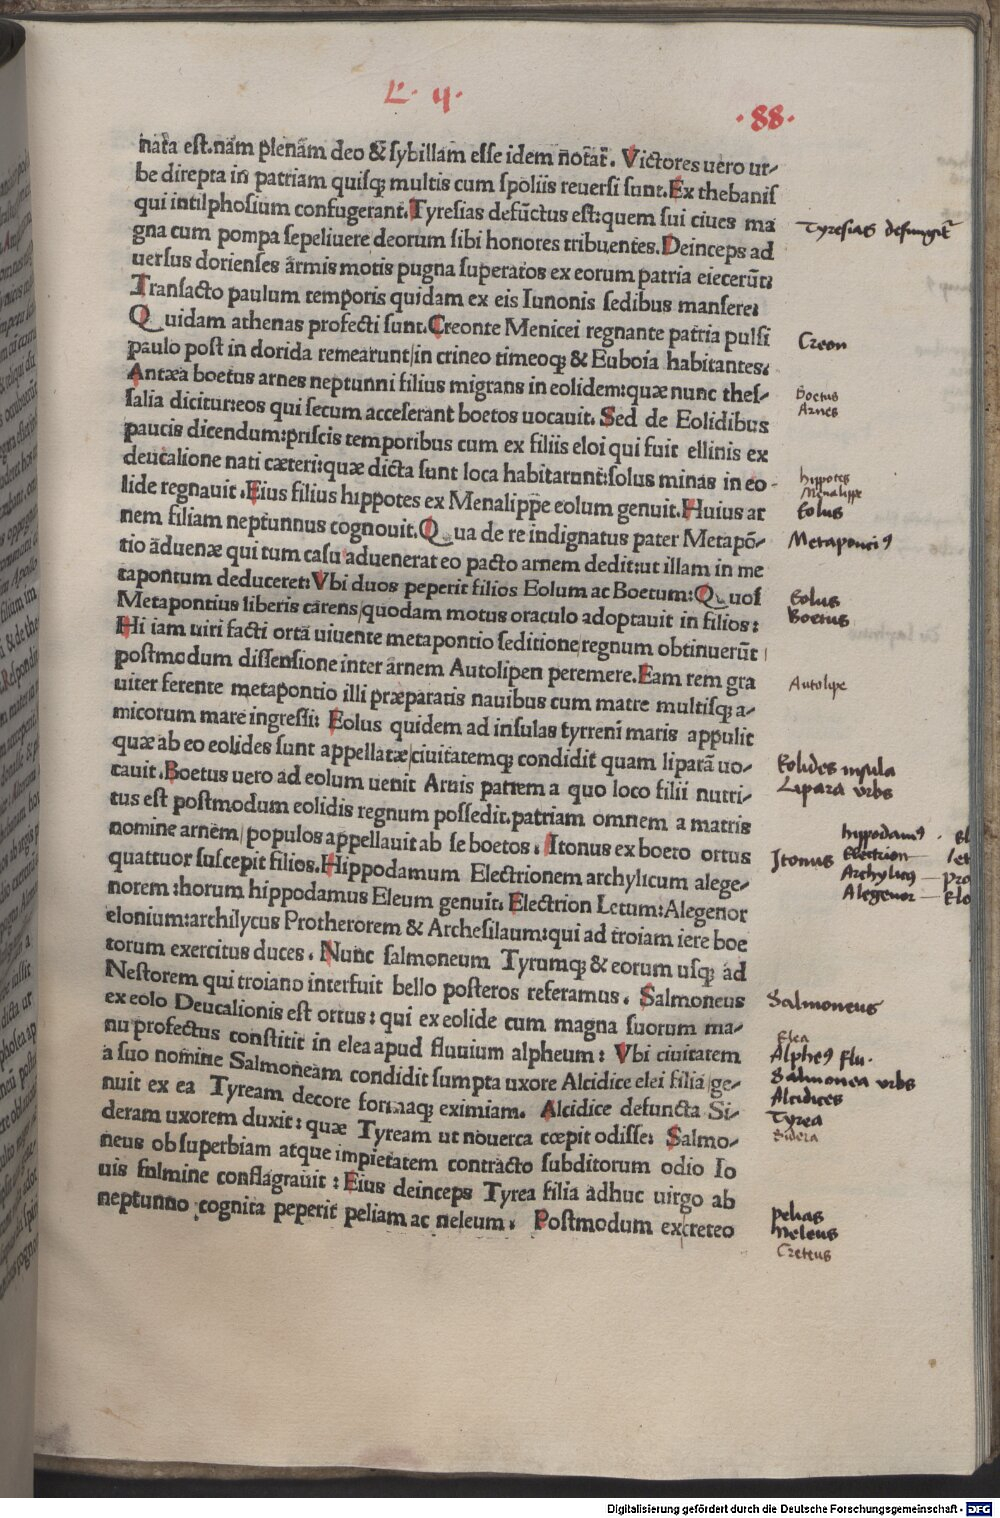 L. 4.
.88.
nata est.nam plenam deo & sybillam esse idem notat. Victores uero ur-
be direpta in patriam quisq; multis cum spoliis reuersi sunt.Ex thebanis
qui intilphosium confugerant.Tyresias defūctus est:quem sui ciues ma
gna cum pompa sepeliuere deorum sibi honores tribuentes.Deinceps ad
uersus dorienses armis motis pugna superatos ex eorum patria eiecerūt:
Transacto paulum temporis quidam ex eis Iunonis sedibus mansere:
Quidam athenas profecti sunt.Creonte Menicei regnante patria pulsi
paulo post in dorida remearunt/in crineo timeoq; & Euboia habitantes.
Antæa boetus arnes neptunni filius migrans in eolidem:quæ nunc thes-
salia dicitur:eos qui secum accesserant boetos uocauit. Sed de Eolidibus
paucis dicendum:priscis temporibus cum ex filiis eloi qui fuit ellinis ex
deucalione nati cæteri:quæ dicta sunt loca habitarunt:solus minas in eo-
lide regnauit.Eius filius hippotes ex Menalippe eolum genuit.Huius ar
nem filiam neptunnus cognouit.Qua de re indignatus pater Metapō-
tio aduenæ qui tum casu aduenerat eo pacto arnem dedit:ut illam in me
tapontum deduceret:Vbi duos peperit filios Eolum ac Boetum:Quos
Metapontius liberis carens/quodam motus oraculo adoptauit in filios:
Hi iam uiri facti orta uiuente metapontio seditione,regnum obtinuerūt/
postmodum dissensione inter arnem Autolipen peremere.Eam rem gra
uiter ferente metapontio illi præparatis nauibus cum matre multisq; a-
micorum mare ingressi: Eolus quidem ad insulas tyrreni maris appulit
quæ ab eo eolides sunt appellatæ/ciuitatemq; condidit quam liparā uo-
cauit.Boetus uero ad eolum uenit Arnis patrem a quo loco filii nutri-
tus est postmodum eolidis regnum possedit.patriam omnem a matris
nomine arnem/populos appellauit ab se boetos. Itonus ex boeto ortus
quattuor suscepit filios.Hippodamum Electrionem archylicum alege-
norem:horum hippodamus Eleum genuit. Electrion Letum:Alegenor
elonium:archilycus Protherorem & Archesilaum:qui ad troiam iere boe
torum exercitus duces. Nunc salmoneum Tyrumq; & eorum usq; ad
Nestorem qui troiano interfuit bello posteros referamus. Salmoneus
ex eolo Deucalionis est ortus: qui ex eolide cum magna suorum ma-
nu profectus constitit in elea apud fluuium alpheum: Vbi ciuitatem
a suo nomine Salmoneam condidit sumpta uxore Alcidice elei filia/ge-
nuit ex ea Tyream decore formaq; eximiam. Alcidice defuncta Si-
deram uxorem duxit: quæ Tyream ut nouerca cœpit odisse: Salmo-
neus ob superbiam atque impietatem contracto subditorum odio Io
uis fulmine conflagrauit: Eius deinceps Tyrea filia adhuc uirgo ab
neptunno cognita peperit peliam ac neleum. Postmodum ex creteo
Tyresias defungit~
Creon
Boetus
Arnes
hippotes
Menalippe
Eolus
Metapontiꝰ
Eolus
Boetus
Autolipe
Eolides insula
Lipara urbs
Itonus
hippodamꝰ .
Electrion
Archylicꝰ — pro
Alegenor — Elo
Salmoneus
Elea
Alpheꝰ flu.
Salmonea urbs
Alcidices
Tyrea
Sidera
pelias
Neleus
Creteus
Digitalisierung gefördert durch die Deutsche Forschungsgemeinschaft - DFG